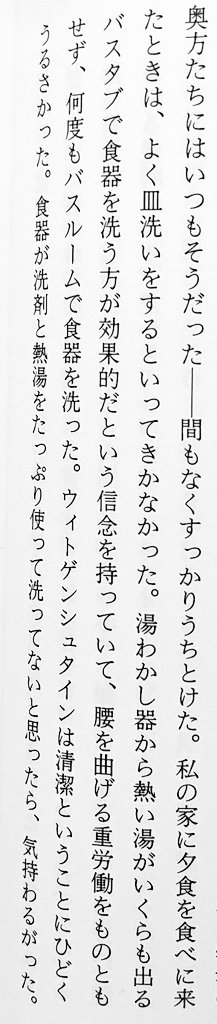 奥方たちにはいつもそうだった——間もなくすっかりうちとけた。私の家に夕食を食べに来
たときは、よく皿洗いをするといってきかなかった。湯わかし器から熱い湯がいくらも出る
バスタブで食器を洗う方が効果的だという信念を持っていて、腰を曲げる重労働をものとも
せず、何度もバスルームで食器を洗った。ウィトゲンシュタインは清潔ということにひどく
うるさかった。食器が洗剤と熱湯をたっぷり使って洗ってないと思ったら、気持わるがった。